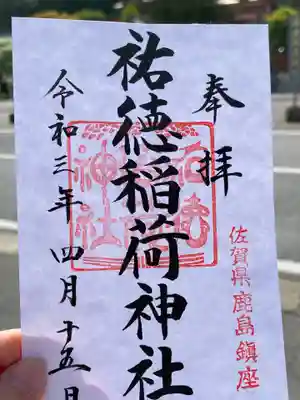 奉拝
佐賀県鹿島鎮座
祐徳稲荷神社
令和三年四月十五日